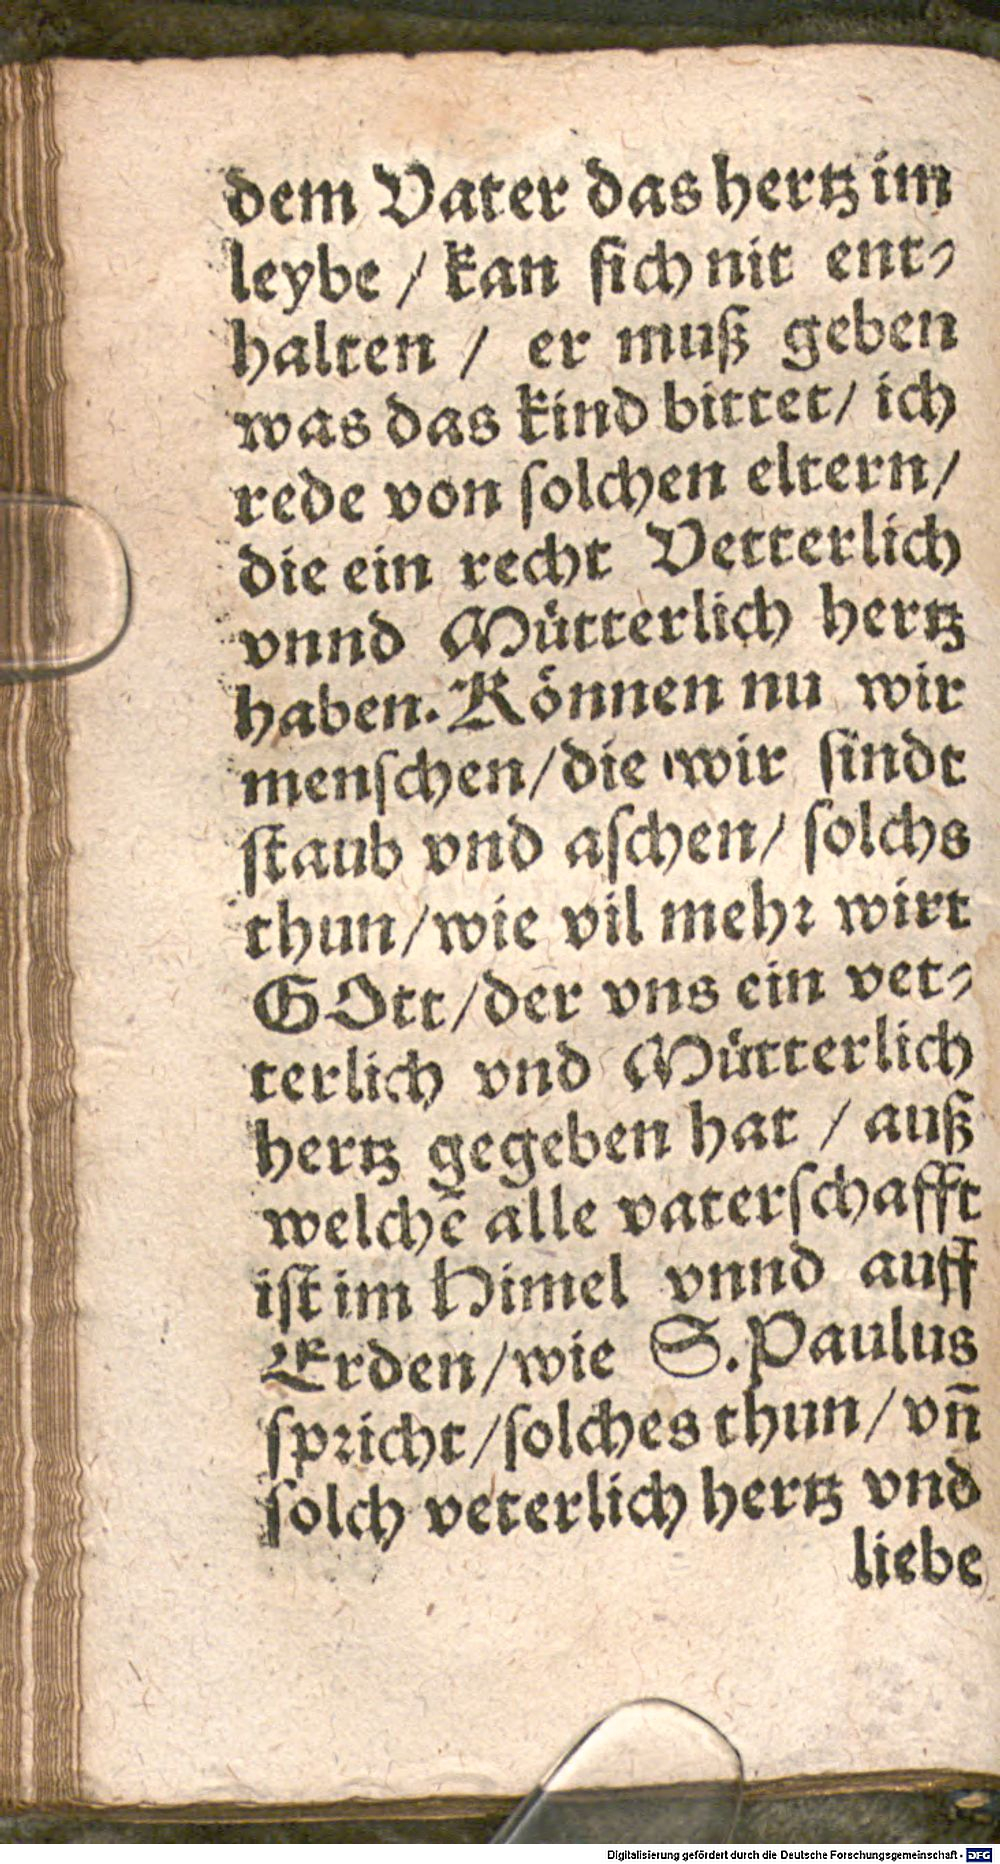 dem Vater das hertz im
leybe / kan sich nit ent⸗
halten / er muß geben
was das kind bittet / ich
rede von solchen eltern /
die ein recht Vetterlich
vnnd Mütterlich hertz
haben. Können nu wir
menschen / die wir sindt
staub vnd aschen / solchs
thun / wie vil mehr wirt
GOtt / der vns ein vet⸗
terlich vnd Mütterlich
hertz gegeben hat / auß
welchē alle vaterschafft
ist im Himel vnnd auff
Erden / wie S. Paulus
spricht / solches thun / vn̄
solch veterlich hertz vnd
liebe
Digitalisierung gefördert durch die Deutsche Forschungsgemeinschaft - DFG